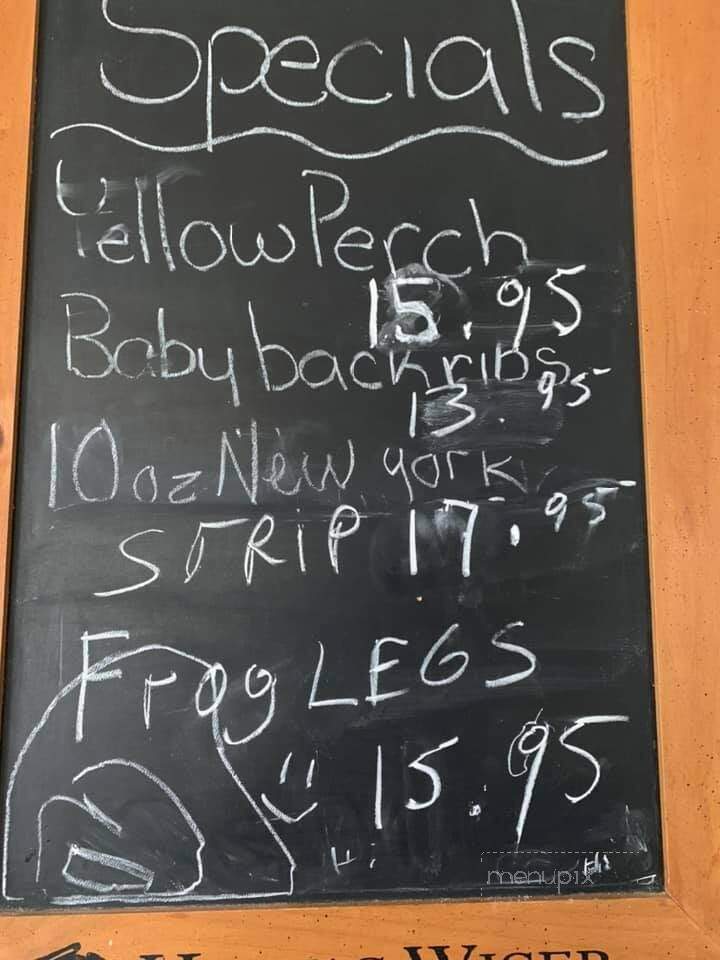 Specials
Yellow Perch
15.95
Baby back ribs
13.95
10 oz New york
STRIP 17.95
Frog LEGS
15.95
Hi
menupix
WISER